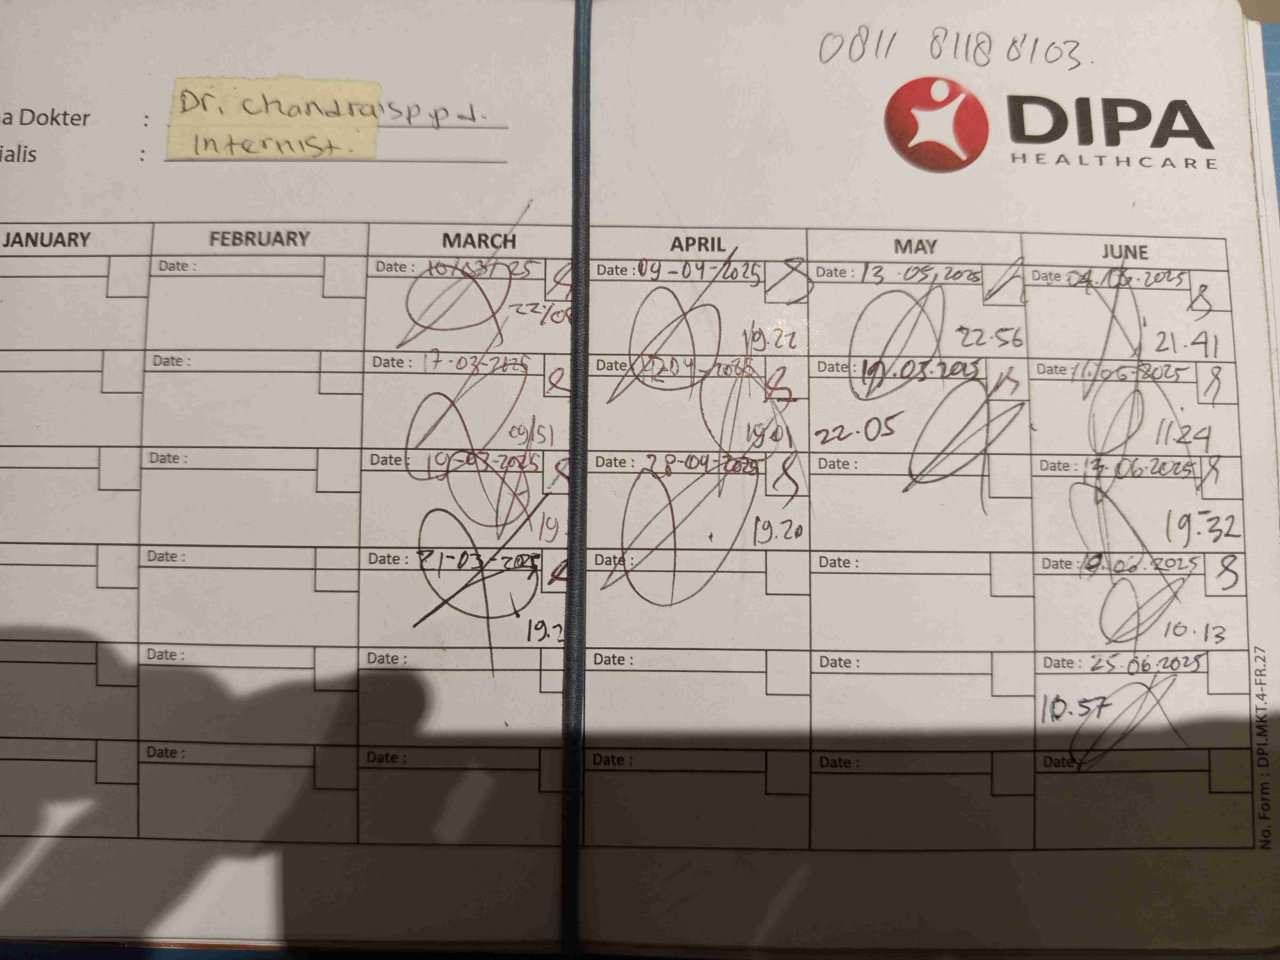 0811 8118 8103.
DIPA
HEALTHCARE
a Dokter : Dr. Chandra sp.p.d.
ialis : Internist.
JANUARY FEBRUARY MARCH APRIL MAY JUNE
Date : Date : 10/03/25 Date : 09-04-2025 Date : 13.05.2025 Date 04.06.2025
19.22 22.56 21.41
Date : Date : 17-03-2025 Date Date : 19.05.2025 Date : 11.06.2025
09/51 19.01 22.05 11.24
Date : Date 19-03-2025 Date : 28-04-2025 Date : Date : 13.06.2025
19. 19.20 19.32
Date : Date : 21-03-2025 Date : Date : Date : 19.06.2025
19.2 10.13
Date : Date : Date : Date : Date : 25.06.2025
10.57
Date : Date : Date : Date : Date
No. Form : DPI.MKT.4-FR.27